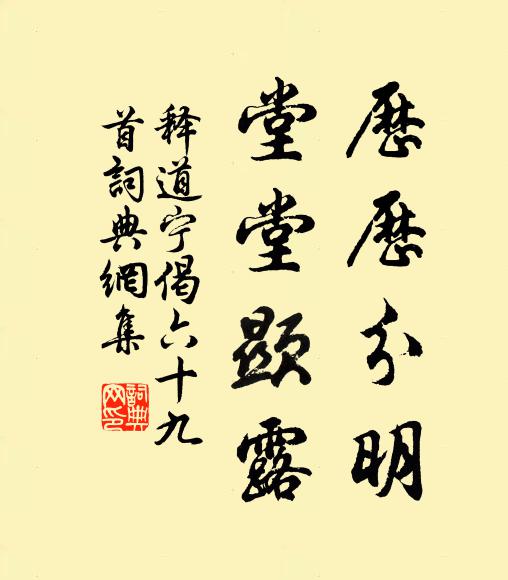 歷歷分明
堂堂顯露
释道宁偈六十九
首詞典網集
詞典
网印